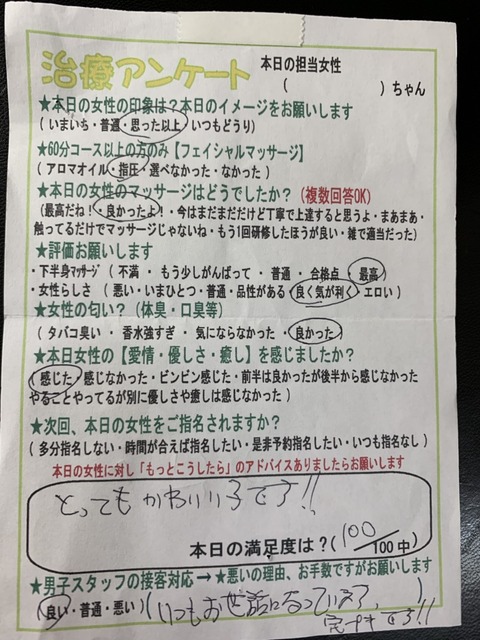 治療アンケート
本日の担当女性
( )ちゃん
★本日の女性の印象は?本日のイメージをお願いします
(いまいち・普通・思った以上・いつもどうり)
★60分コース以上の方のみ【フェイシャルマッサージ】
(アロマオイル・指圧・選べなかった・なかった)
★本日の女性のマッサージはどうでしたか?(複数回答OK)
(最高だね!・良かったよ!・今はまだまだだけど丁寧で上達すると思うよ・まあまあ・
触ってるだけでマッサージじゃないね・もう1回研修したほうが良い・雑で適当だった)
★評価お願いします
・下半身マッサージ(不満・もう少しがんばって・普通・合格点・最高)
・女性らしさ(悪い・いまひとつ・普通・品性がある・良く気が利く・エロい)
★女性の匂い?(体臭・口臭等)
(タバコ臭い・香水強すぎ・気にならなかった・良かった)
★本日女性の【愛情・優しさ・癒し】を感じましたか?
(感じた・感じなかった・ビンビン感じた・前半は良かったが後半から感じなかった
やることやってるが別に優しさや癒しは感じなかった)
★次回、本日の女性をご指名されますか?
(多分指名しない・時間が合えば指名したい・是非予約指名したい・いつも指名なし)
本日の女性に対し「もっとこうしたら」のアドバイスありましたらお願いします
とってもかわいい子です!!
本日の満足度は?(100/100中)
★男子スタッフの接客対応→★悪いの理由、お手数ですがお願いします
(良い・普通・悪い)(いつもお世話になっています、)
完ペキです!!